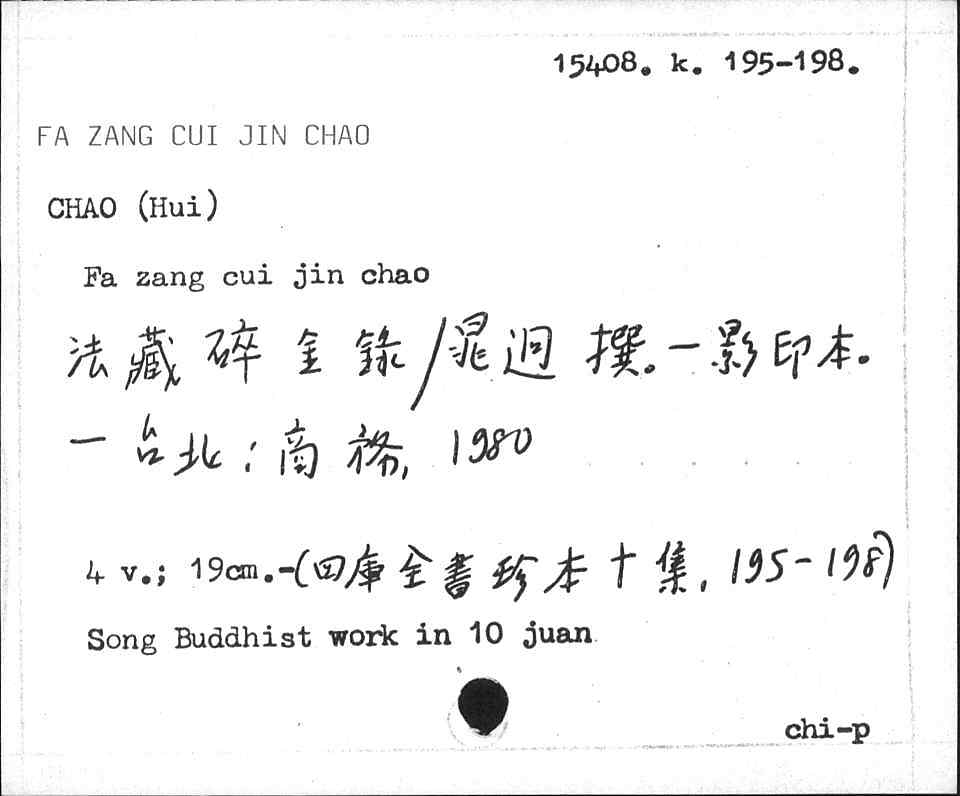 15408. k. 195-198.
FA ZANG CUI JIN CHAO
CHAO (Hui)
Fa zang cui jin chao
法藏碎金錄/晁迥撰。一影印本。
一台北:商務, 1980
4 v.; 19cm.-(四庫全書珍本十集, 195-198)
Song Buddhist work in 10 juan.
chi-p